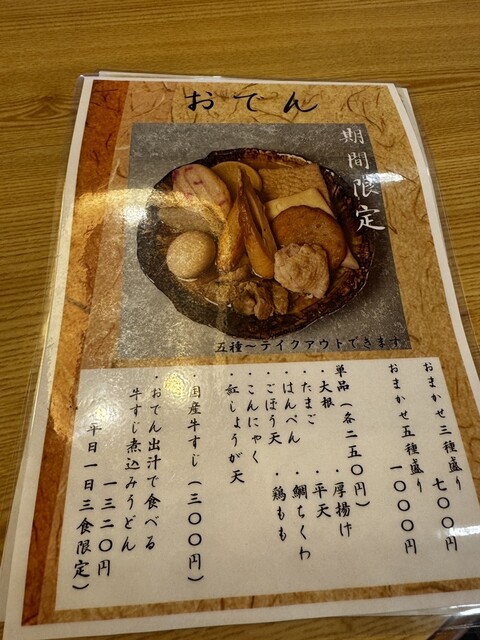 おでん
期間限定
五種〜テイクアウトできます
おまかせ三種盛り
七〇〇円
おまかせ五種盛り
一〇〇〇円
単品（各二五〇円）
・大根
・厚揚げ
・たまご
・平天
・はんぺん
・鯛ちくわ
・ごぼう天
・鶏もも
・こんにゃく
・紅しょうが天
・国産牛すじ（三〇〇円）
・おでん出汁で食べる
牛すじ煮込みうどん
一三二〇円
平日一日三食限定）